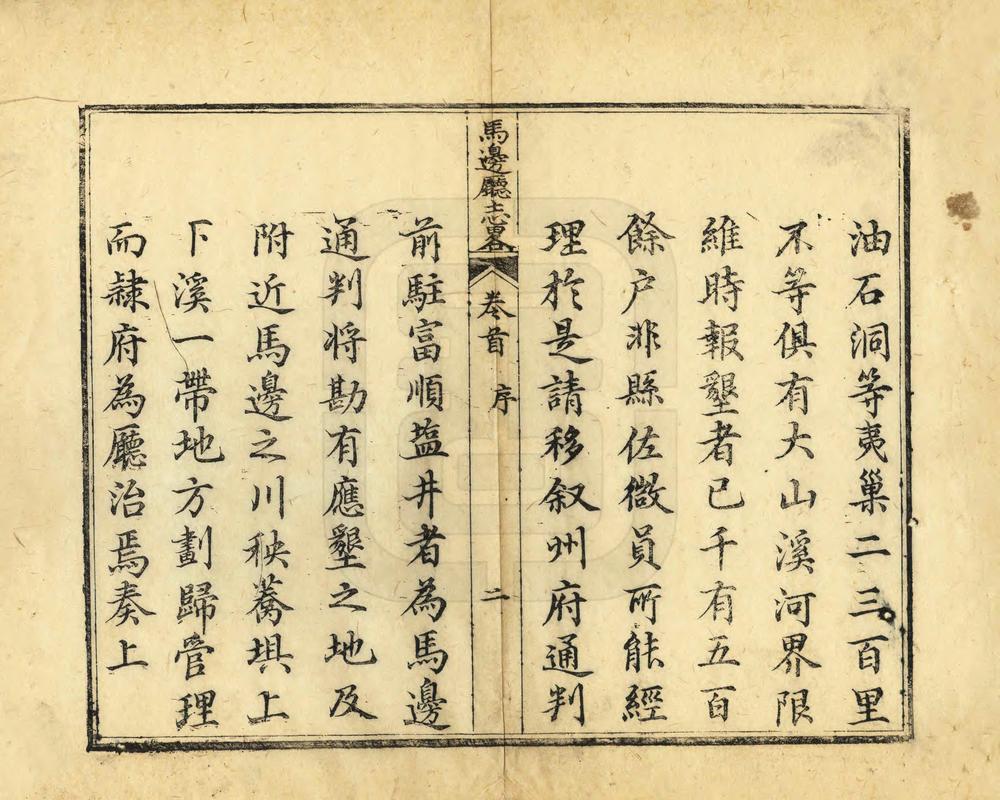 油石洞等夷巢二三百里
不等俱有大山溪河界限
維時報墾者已千有五百
餘户非縣佐微員所能經
理於是請移叙州府通判
馬邊廳志畧 卷首 序 二
前駐富順塩井者為馬邊
通判将勘有應墾之地及
附近馬邊之川秧蕎垻上
下溪一帶地方劃歸管理
而隷府為廳治焉奏上